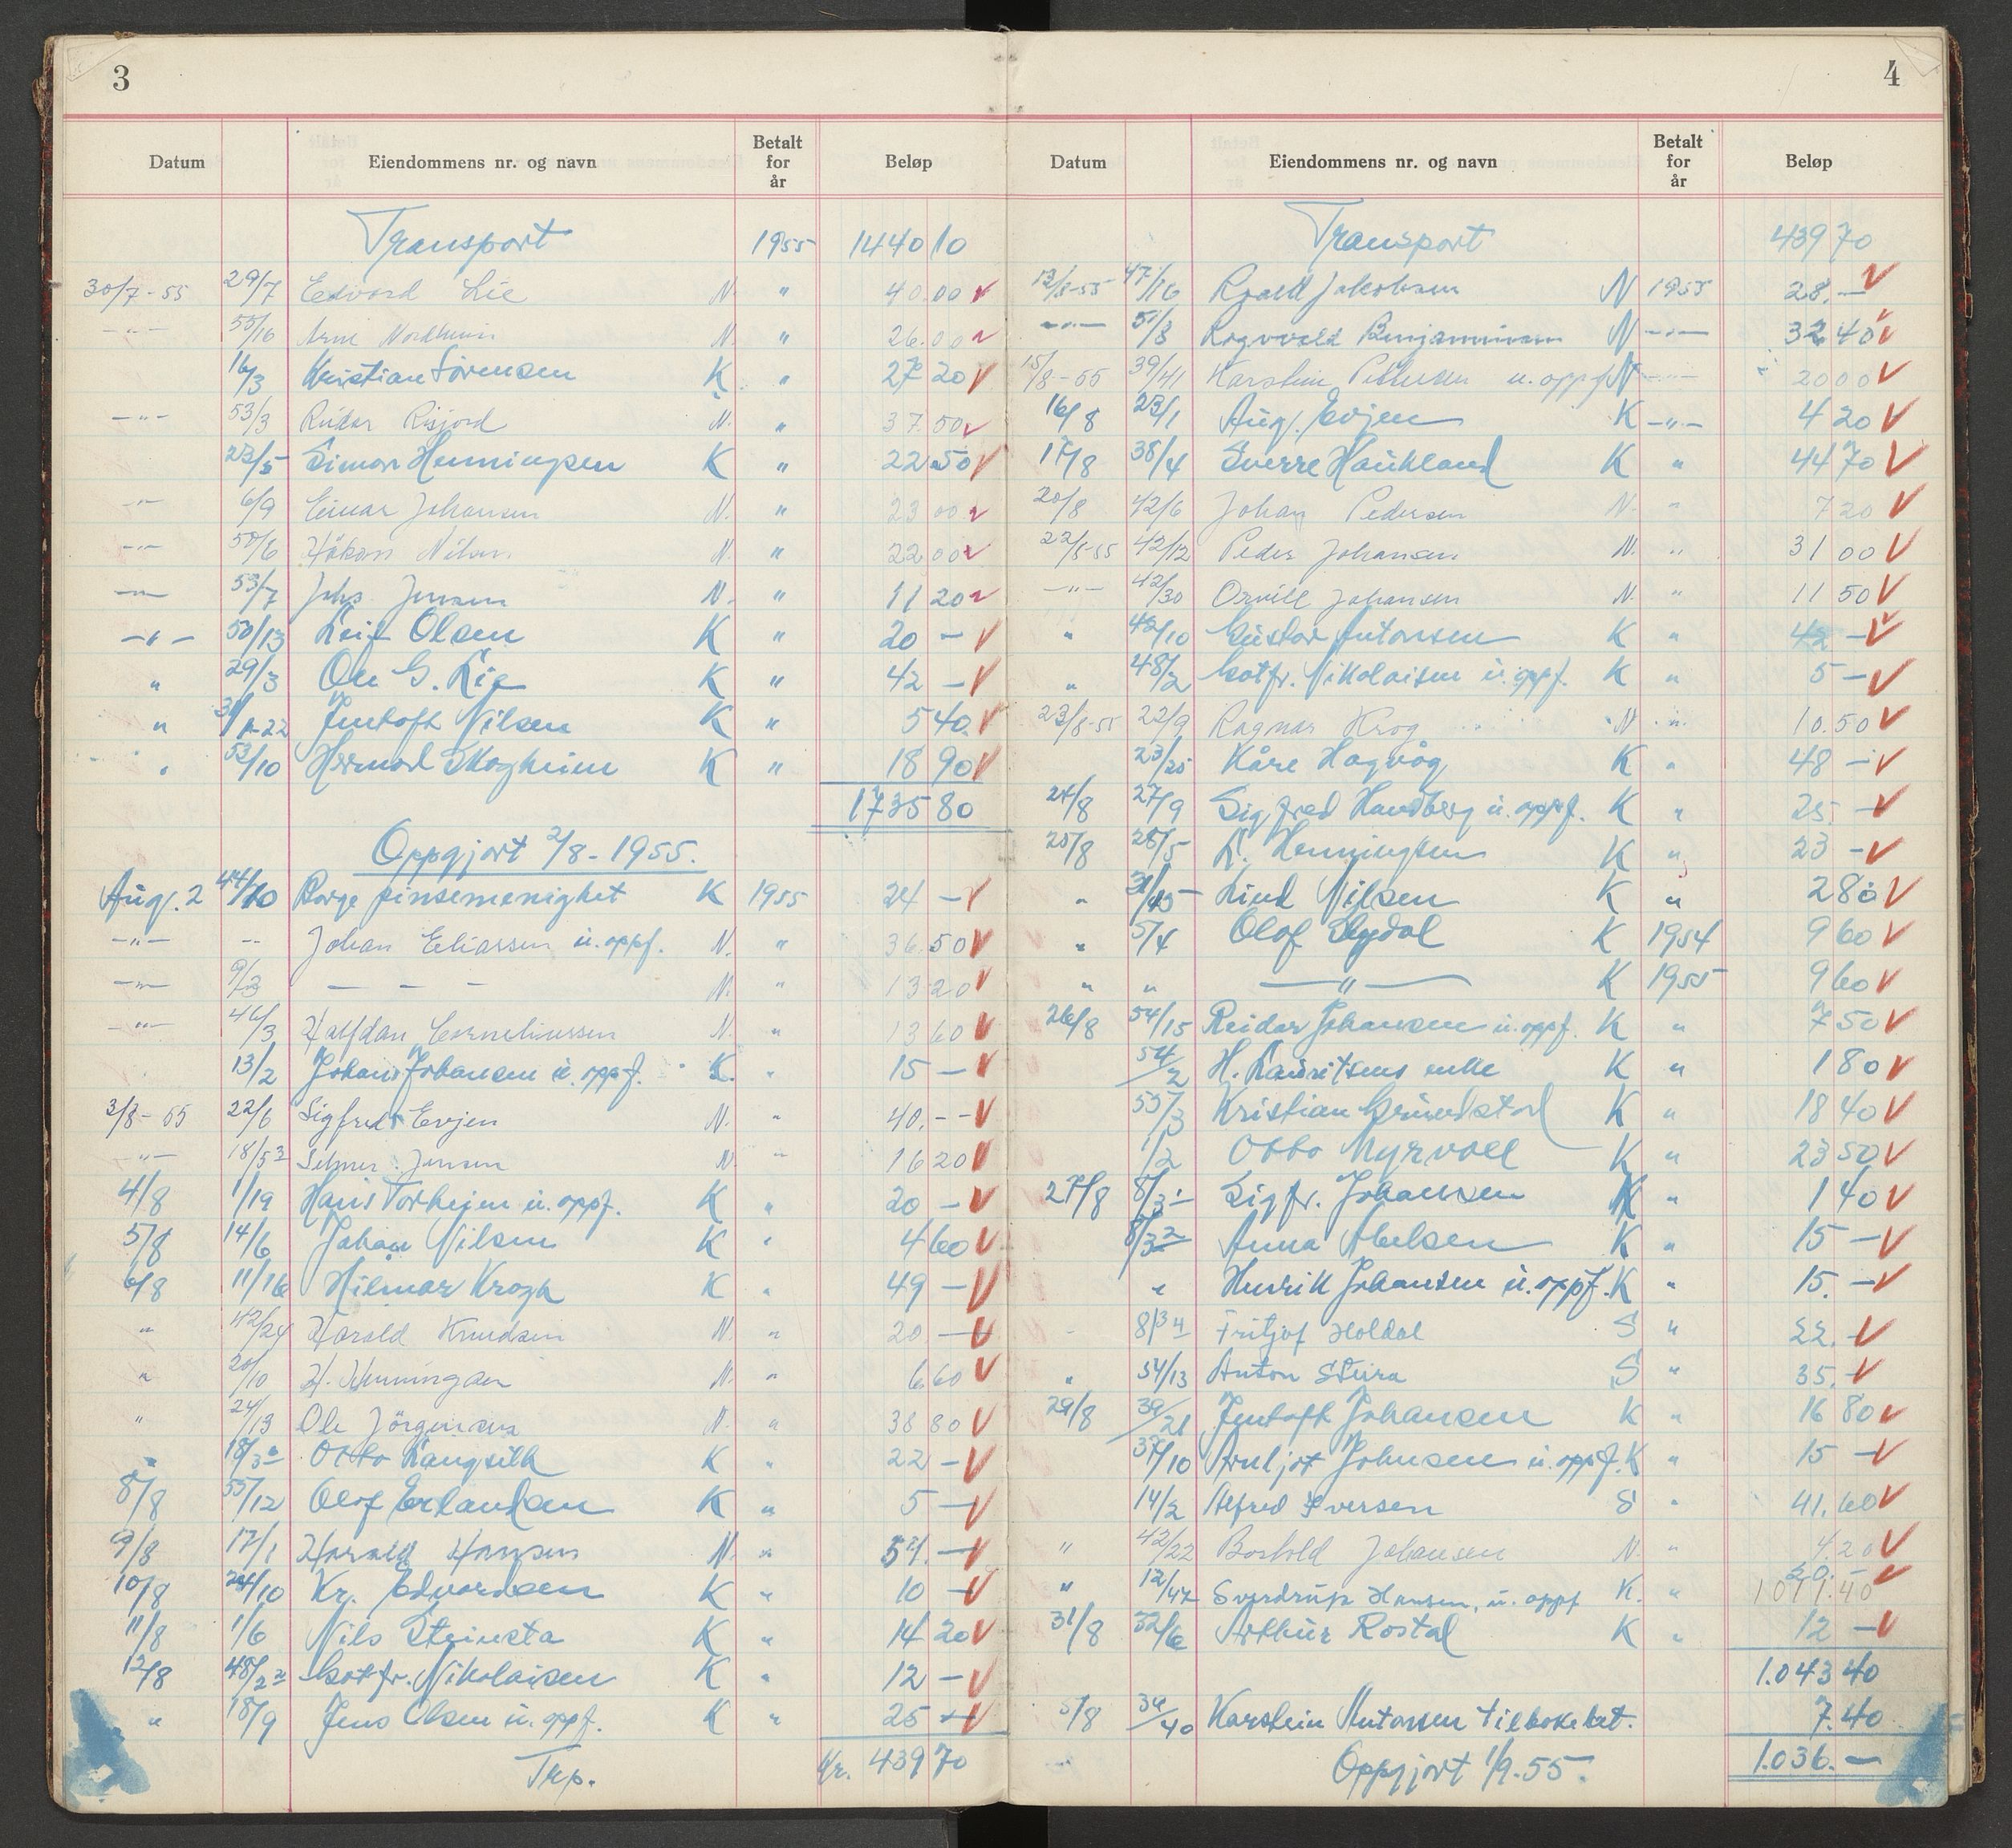 3
Datum Eiendommens nr. og navn Betalt for år Beløp
Transport 1955 1440 10
30/7-55 29/7 Edvard Lie N. " 40.00
-"- 55/16 Arne Nordheim N. " 26.00
16/3 Kristian Sörensen K " 27 20
-"- 53/3 Reidar Risjord N. " 37.50
23/5 Simon Henningsen K " 22.50
-"- 6/9 Einar Johansen N. " 23 00
-"- 50/6 Håkon Nilsen N. " 22 00
-"- 53/7 Johs Jensen N. " 11 20
-"- 50/13 Leif Olsen K " 20 -
" 29/3 Ole G. Lie K " 42 -
" 31/1-22 Jentoft Nilsen K " 5 40
" 53/10 Hermod Skogheim K " 18 90
1735 80
Oppgjort 2/8-1955.
Aug. 2 44/10 Borge pinsemenighet K 1955 24 -
-"- -- Johan Eliassen u. oppf. N. " 36.50
-"- 9/3 - - - N. " 13 20
-"- 46/3 Halfdan Corneliussen N. " 13 60
13/2 Johan Johansen u. oppf. K. " 15 -
3/8-55 22/6 Sigfred Evjen N. " 40.--
-"- 18/53 Selmer Jensen N. " 16 20
4/8 1/19 Hans Torheim u. oppf. K " 20 -
5/8 14/6 Johan Nilsen K " 4 60
6/8 11/16 Hilmar Krogh K " 49 -
" 42/24 Harald Knudsen N. " 20. -
" 20/10 H. Henningsen N. " 6 60
" 24/13 Ole Jörgensen N. " 38 80
" 18/3 Otto Langsilk K " 22 -
8/8 55/12 Olof Erlandsen K " 5 -
9/8 17/1 Harald Hansen N. " 54. -
10/8 24/10 Kr. Edvardsen K " 10 -
11/8 1/6 Nils Steinsta K " 14 20
12/8 48/2 Gotfr. Nikolaisen K " 12 -
" 18/9 Jens Olsen u. oppf. K " 25 -
Trp. Kr. 439 70
4
Datum Eiendommens nr. og navn Betalt for år Beløp
Transport 439 70
12/8-55 47/16 Roald Jakobsen N 1955 28.-
-"- 51/8 Rognvald Benjaminsen N -"- 32 40
15/8-55 39/41 Karstein Pettersen u. oppf N -"- 20 00
16/8 23/1 Aug. Evjen K -"- 4 20
17/8 38/4 Sverre Haukland K " 44 70
20/8 42/6 Johan Pedersen N. " 7 20
22/8-55 42/12 Peder Johansen N. " 31 00
-"- 42/30 Orvill Johansen N. " 11 50
" 42/10 Gustav Antonsen K " 42 -
" 48/2 Gotfr. Nikolaisen u. oppf. K " 5 -
23/8-55 22/9 Ragnar Krog N. " 10.50
23/25 Kåre Hagvåg K " 48 -
24/8 27/9 Sigfred Handberg u. oppf. K " 25 -
25/8 26/5 L. Henningsen K " 23 -
" 31/45 Lind Nilsen K " 2 80
" 5/4 Olof Slydal K 1954 9 60
" " -"- K 1955 9 60
26/8 54/15 Reidar Johansen u. oppf. K " 7 50
54/2 H. Lauritsens enke K " 1 80
55/3 Kristian Grundstad K " 18 40
1/2 Otto Myrvoll K " 23 50
27/8 8/31 Sigfr. Johansen K " 1 40
8/32 Anna Abelsen K " 15 -
" Henrik Johansen u. oppf. K " 15. -
8/34 Fritjof Holdal S " 22. -
" 54/13 Anton Steira S " 35. -
29/8 39/21 Jentoft Johansen K " 16 80
37/10 Arnljot Johnsen u. oppf. K " 15 -
14/2 Alfred Iversen S " 41.60
" 42/22 Borhold Johansen N. " 4.20
" 12/47 Sverdrup Hansen, u. oppf K. " 20.-
1011.40
31/8 32/6 Arthur Rostad K " 12 -
1.043 40
5/8 39/40 Karstein Antonsen tilbakebet. 7.40
Oppgjort 1/9.55. 1.036.-